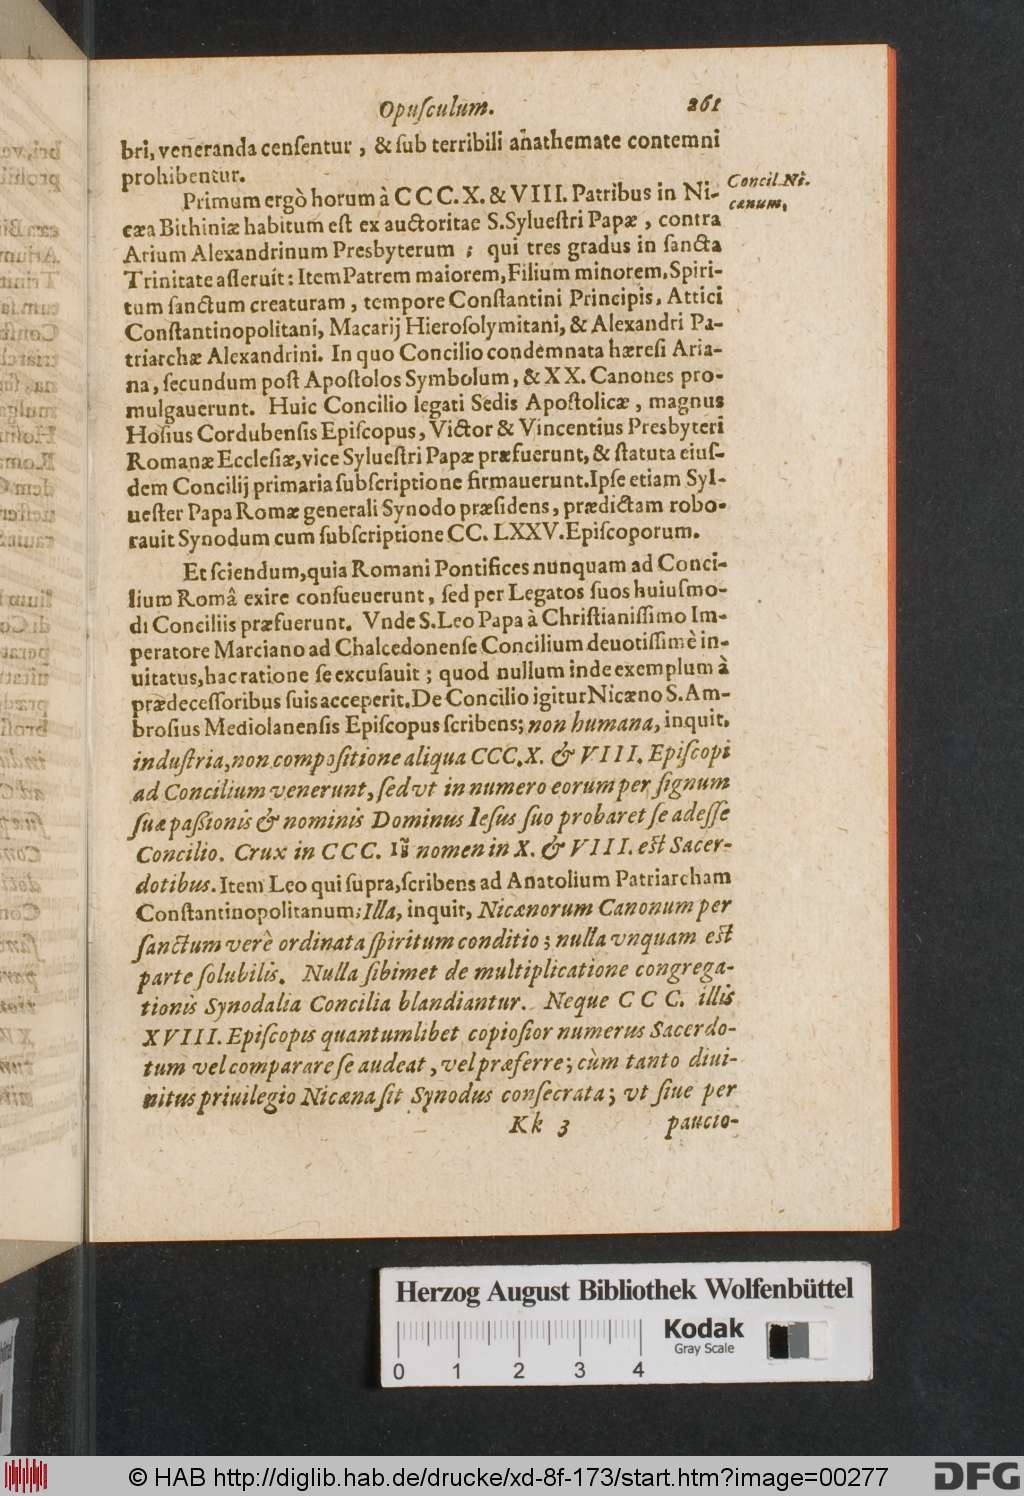 Opuſculum. 261
bri, veneranda cenſentur, & ſub terribili anathemate contemni
prohibentur.
Primum ergò horum à CCC. X. & VIII. Patribus in Ni-
Concil. Ni-
canum.
cæa Bithiniæ habitum eſt ex auctoritae S. Sylueſtri Papæ, contra
Arium Alexandrinum Presbyterum; qui tres gradus in ſancta
Trinitate aſſeruit: Item Patrem maiorem, Filium minorem, Spiri-
tum ſanctum creaturam, tempore Conſtantini Principis, Attici
Conſtantinopolitani, Macarij Hieroſolymitani, & Alexandri Pa-
triarchæ Alexandrini. In quo Concilio condemnata hæreſi Aria-
na, ſecundum poſt Apoſtolos Symbolum, & XX. Canones pro-
mulgauerunt. Huic Concilio legati Sedis Apoſtolicæ, magnus
Hoſius Cordubenſis Epiſcopus, Victor & Vincentius Presbyteri
Romanæ Eccleſiæ, vice Sylueſtri Papæ præfuerunt, & ſtatuta eiuſ-
dem Concilij primaria ſubſcriptione firmauerunt. Ipſe etiam Syl-
ueſter Papa Romæ generali Synodo præſidens, prædictam robo-
rauit Synodum cum ſubſcriptione CC. LXXV. Epiſcoporum.
Et ſciendum, quia Romani Pontifices nunquam ad Conci-
lium Româ exire conſueuerunt, ſed per Legatos ſuos huiuſmo-
di Conciliis præfuerunt. Vnde S. Leo Papa à Chriſtianiſſimo Im-
peratore Marciano ad Chalcedonenſe Concilium deuotiſſimè in-
uitatus, hac ratione ſe excuſauit; quod nullum inde exemplum à
prædeceſſoribus ſuis acceperit. De Concilio igitur Nicæno S. Am-
broſius Mediolanenſis Epiſcopus ſcribens; non humana, inquit,
induſtria, non compoſitione aliqua CCC. X. & VIII. Epiſcopi
ad Concilium venerunt, ſed vt in numero eorum per ſignum
ſuæ paßionis & nominis Dominus Ieſus ſuo probaret ſe adeſſe
Concilio. Crux in CCC. nomen in X. & VIII. eſt Sacer-
dotibus. Item Leo qui ſupra, ſcribens ad Anatolium Patriarcham
Conſtantinopolitanum; Illa, inquit, Nicænorum Canonum per
ſanctum verè ordinata ſpiritum conditio; nulla vnquam eſt
parte ſolubilis. Nulla ſibimet de multiplicatione congrega-
tionis Synodalia Concilia blandiantur. Neque CCC. illis
XVIII. Epiſcopis quantumlibet copioſior numerus Sacerdo-
tum vel comparare ſe audeat, vel præferre; cùm tanto diui-
nitus priuilegio Nicæna ſit Synodus conſecrata; vt ſiue per
Kk 3 paucio-
Herzog August Bibliothek Wolfenbüttel
0 1 2 3 4
Kodak
Gray Scale
© HAB http://diglib.hab.de/drucke/xd-8f-173/start.htm?image=00277
DFG